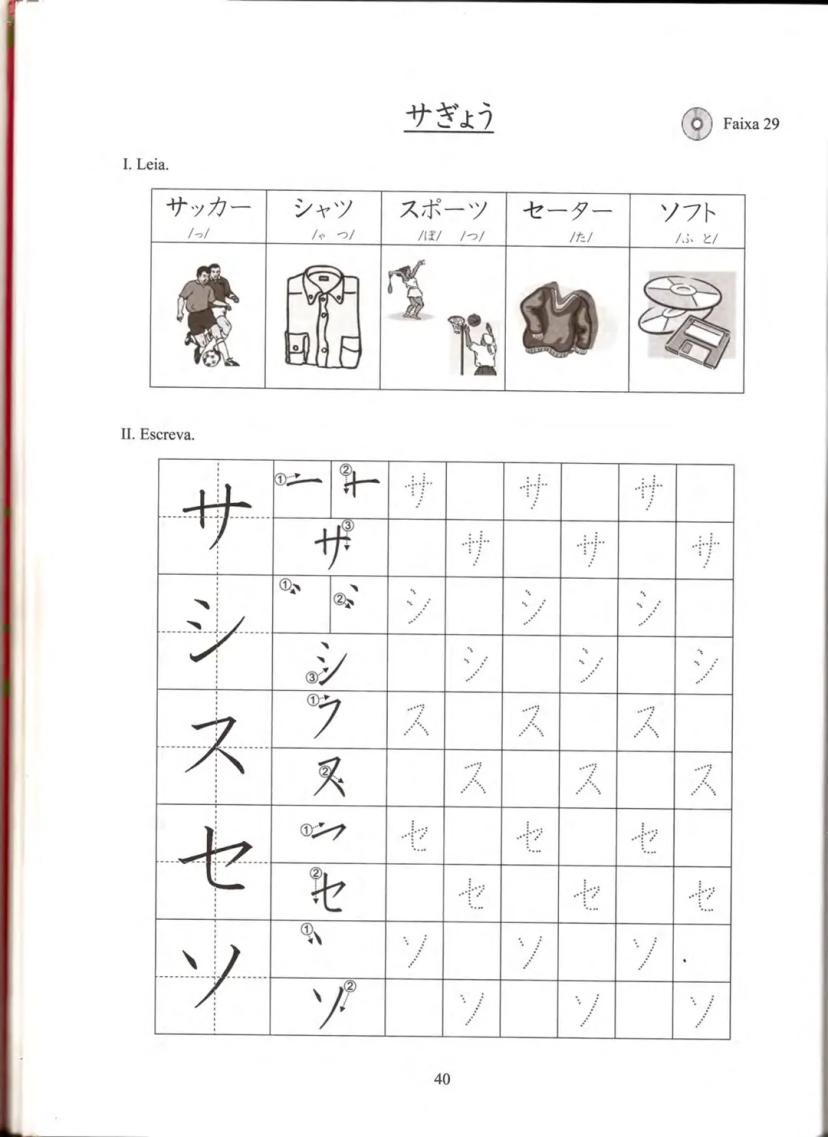 サぎょう
Faixa 29
I. Leia.
サッカー シャツ スポーツ セーター ソフト
/っ/ /ゃ つ/ /ぽ/ /つ/ /た/ /ふ と/
II. Escreva.
サ ① ② サ サ サ
サ ③ サ サ サ
シ ① ② シ シ シ
シ ③ シ シ シ
ス ① フ ス ス ス
ス ② ス ス ス
セ ① セ セ セ
セ ② セ セ セ
ソ ① ソ ソ ソ
ソ ② ソ ソ ソ
40